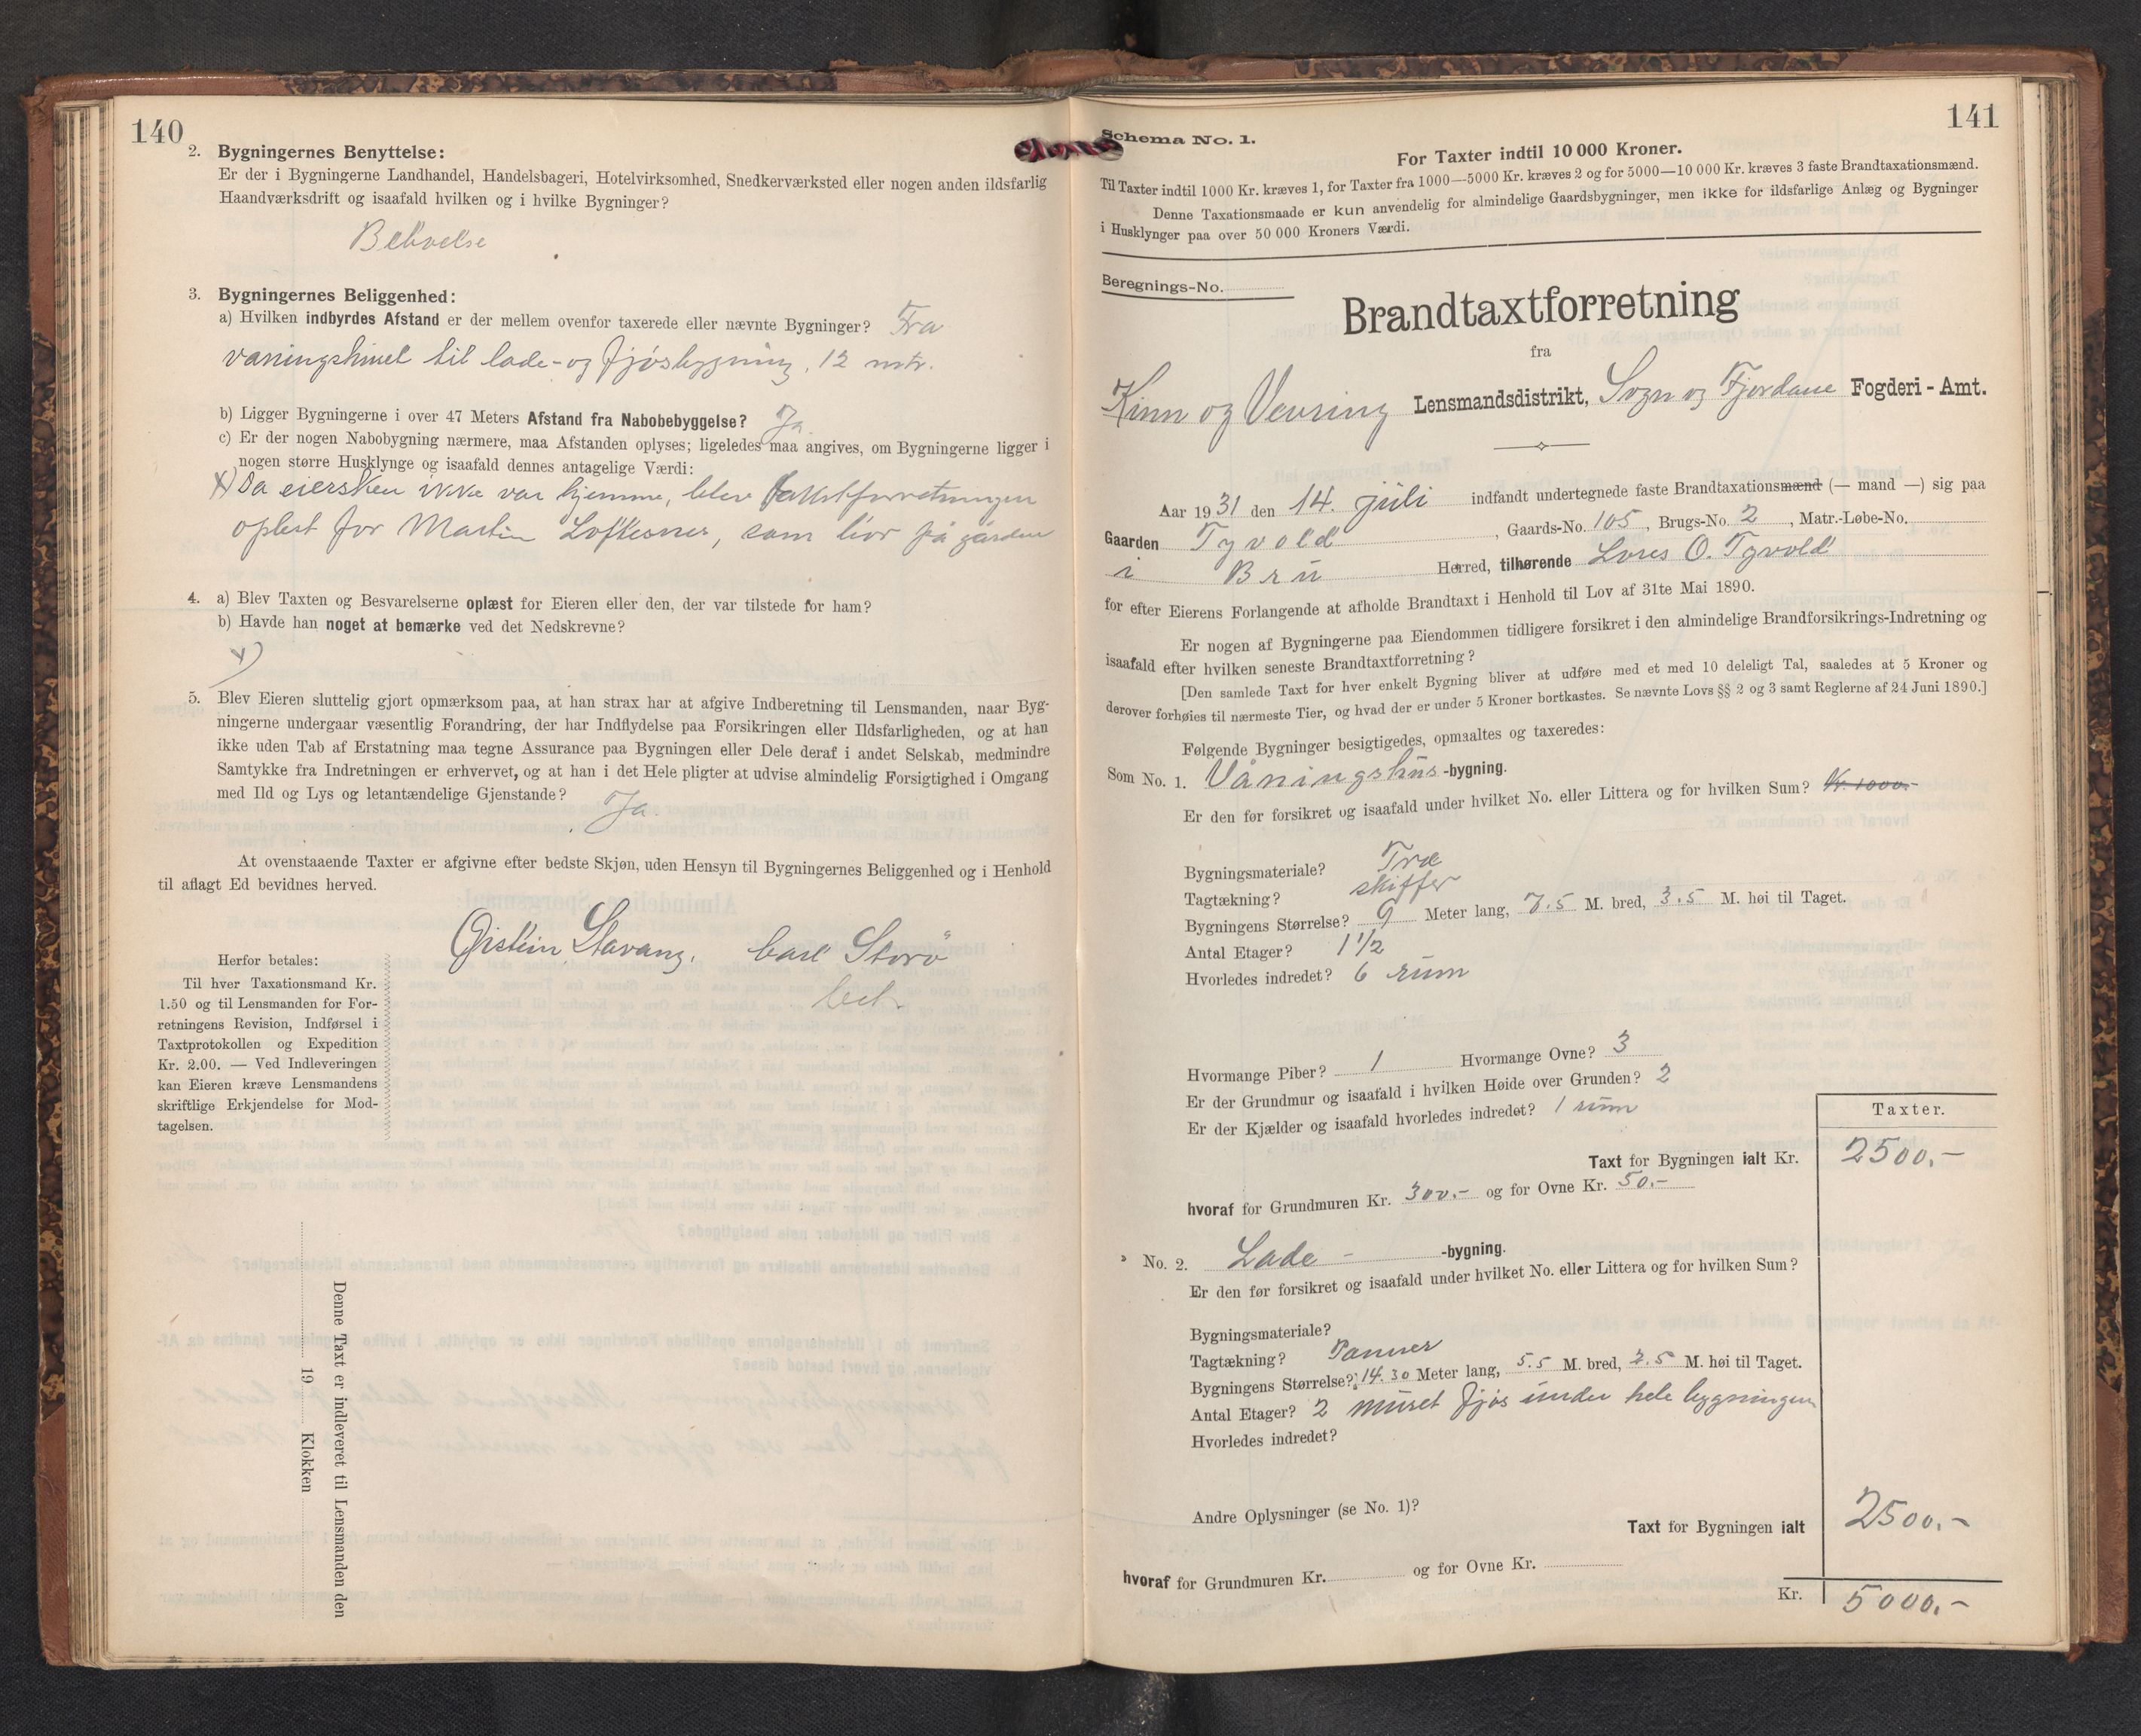 140
2. Bygningernes Benyttelse:
Er der i Bygningerne Landhandel, Handelsbageri, Hotelvirksomhed, Snedkerværksted eller nogen anden ildsfarlig
Haandværksdrift og isaafald hvilken og i hvilke Bygninger?
3. Bygningernes Beliggenhed:
a) Hvilken indbyrdes Afstand er der mellem ovenfor taxerede eller nævnte Bygninger? Fra
våningshuset til lade- og fjøsbygning, 12 mtr.
b) Ligger Bygningerne i over 47 Meters Afstand fra Nabobebyggelse? Ja.
c) Er der nogen Nabobygning nærmere, maa Afstanden oplyses; ligeledes maa angives, om Bygningerne ligger i
nogen større Husklynge og isaafald dennes antagelige Værdi:
x) Da eiersken ikke var hjemme, blev takstforretningen
oplest for Martin, som bor på gården
4. a) Blev Taxten og Besvarelserne oplæst for Eieren eller den, der var tilstede for ham?
b) Havde han noget at bemærke ved det Nedskrevne?
x)
5. Blev Eieren sluttelig gjort opmærksom paa, at han strax har at afgive Indberetning til Lensmanden, naar Byg-
ningerne undergaar væsentlig Forandring, der har Indflydelse paa Forsikringen eller Ildsfarligheden, og at han
ikke uden Tab af Erstatning maa tegne Assurance paa Bygningen eller Dele deraf i andet Selskab, medmindre
Samtykke fra Indretningen er erhvervet, og at han i det Hele pligter at udvise almindelig Forsigtighed i Omgang
med Ild og Lys og letantændelige Gjenstande? Ja.
At ovenstaaende Taxter er afgivne efter bedste Skjøn, uden Hensyn til Bygningernes Beliggenhed og i Henhold
til aflagt Ed bevidnes herved.
Øistein Stavang. Carl Storö
Herfor betales:
Til hver Taxationsmand Kr.
1.50 og til Lensmanden for For-
retningens Revision, Indførsel i
Taxtprotokollen og Expedition
Kr. 2.00. — Ved Indleveringen
kan Eieren kræve Lensmandens
skriftlige Erkjendelse for Mod-
tagelsen.
Denne Taxt er indleveret til Lensmanden den
19 Klokken
141
Schema No. 1.
For Taxter indtil 10 000 Kroner.
Til Taxter indtil 1000 Kr. kræves 1, for Taxter fra 1000—5000 Kr. kræves 2 og for 5000—10 000 Kr. kræves 3 faste Brandtaxationsmænd.
Denne Taxationsmaade er kun anvendelig for almindelige Gaardsbygninger, men ikke for ildsfarlige Anlæg og Bygninger
i Husklynger paa over 50 000 Kroners Værdi.
Beregnings-No.
Brandtaxtforretning
fra
Kinn og Vevring Lensmandsdistrikt, Sogn og Fjordane Fogderi - Amt.
Aar 1931 den 14. juli indfandt undertegnede faste Brandtaxationsmænd (— mand —) sig paa
Gaarden Tyvold, Gaards-No. 105, Brugs-No. 2, Matr.-Løbe-No.
i Bru Herred, tilhørende O. Tyvold
for efter Eierens Forlangende at afholde Brandtaxt i Henhold til Lov af 31te Mai 1890.
Er nogen af Bygningerne paa Eiendommen tidligere forsikret i den almindelige Brandforsikrings-Indretning og
isaafald efter hvilken seneste Brandtaxtforretning?
[Den samlede Taxt for hver enkelt Bygning bliver at udføre med et med 10 deleligt Tal, saaledes at 5 Kroner og
derover forhøies til nærmeste Tier, og hvad der er under 5 Kroner bortkastes. Se nævnte Lovs §§ 2 og 3 samt Reglerne af 24 Juni 1890.]
Følgende Bygninger besigtigedes, opmaaltes og taxeredes:
Som No. 1. Våningshus-bygning.
Er den før forsikret og isaafald under hvilket No. eller Littera og for hvilken Sum? Kr. 1000.-
Bygningsmateriale? Træ
Tagtækning? skiffer
Bygningens Størrelse? 9 Meter lang, 7.5 M. bred, 3.5 M. høi til Taget.
Antal Etager? 1 1/2
Hvorledes indredet? 6 rum
Hvormange Piber? 1 Hvormange Ovne? 3
Er der Grundmur og isaafald i hvilken Høide over Grunden? 2
Er der Kjælder og isaafald hvorledes indredet? 1 rum
Taxter.
Taxt for Bygningen ialt Kr. 2500.-
hvoraf for Grundmuren Kr. 300.- og for Ovne Kr. 50.-
No. 2. Lade - -bygning.
Er den før forsikret og isaafald under hvilket No. eller Littera og for hvilken Sum?
Bygningsmateriale?
Tagtækning? Panner
Bygningens Størrelse? 14.30 Meter lang, 5.5 M. bred, 2.5 M. høi til Taget.
Antal Etager? 2 muret fjøs under hele bygningen
Hvorledes indredet?
Andre Oplysninger (se No. 1)?
Taxt for Bygningen ialt 2500.-
hvoraf for Grundmuren Kr. og for Ovne Kr.
Kr. 5000.-